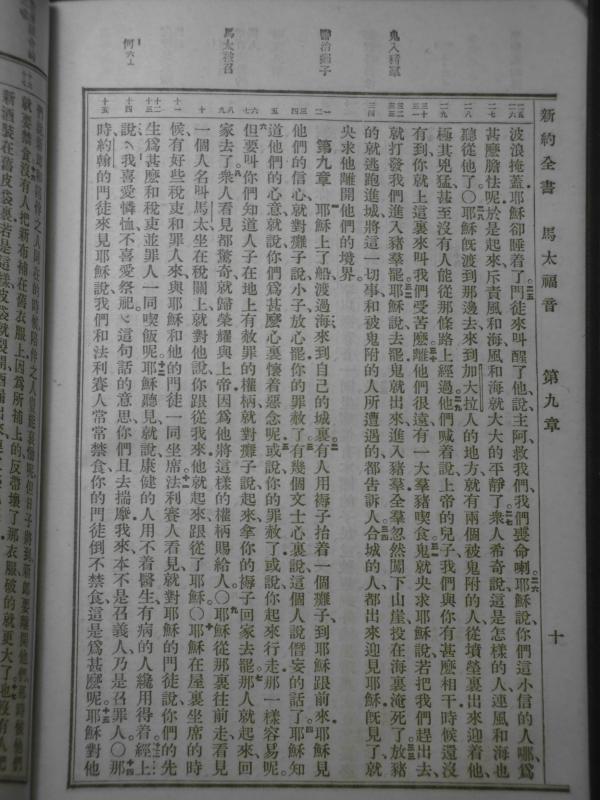 新約全書 馬太福音 第九章 十
鬼入豬羣
醫治癱子
馬太蒙召
波浪掩蓋耶穌卻睡着了門徒來叫醒了他說、主阿救我們、我們喪命喇耶穌說、你們這小信的人哪、爲
甚麼膽怯呢、於是起來斥責風和海、風和海就大大的平靜了衆人希奇說、這是怎樣的人、連風和海也
聽從他了〇耶穌旣渡到那邊去、來到加大拉人的地方、就有兩個被鬼附的人、從墳塋裏出來迎着他、
極其兇猛、甚至沒有人能從那條路上經過他們喊着說、上帝的兒子、我們與你有甚麼相干、時候還沒
有到、你就上這裏來叫我們受苦麼離他們很遠、有一大羣豬喫食鬼就央求耶穌說、若把我們趕出去、
就打發我們進入豬羣罷耶穌說、去罷、鬼就出來、進入豬羣、全羣忽然闖下山崖、投在海裏淹死了放豬
的就逃跑進城、將這一切事、和被鬼附的人所遭遇的、都告訴人合城的人、都出來迎見耶穌、旣見了、就
央求他離開他們的境界。
第九章 耶穌上了船、渡過海、來到自己的城裏有人用褥子抬着一個癱子、到耶穌跟前來、耶穌見
他們的信心、就對癱子說、小子、放心罷、你的罪赦了有幾個文士心裏說、這個人說僭妄的話了耶穌知
道他們的心意、就說、你們爲甚麼心裏懷着惡念呢或說、你的罪赦了、或說、你起來行走、那一樣容易呢。
但要叫你們知道人子在地上有赦罪的權柄、就對癱子說、起來、拿你的褥子回家去罷那人就起來、回
家去了衆人看見都驚奇、就歸榮耀與上帝、因爲他將這樣的權柄賜給人〇耶穌從那裏往前走、看見
一個人名叫馬太、坐在稅關上、就對他說、你跟從我來、他就起來跟從了耶穌〇耶穌在屋裏坐席的時
候、有好些稅吏和罪人來、與耶穌和他的門徒一同坐席法利賽人看見、就對耶穌的門徒說、你們的先
生爲甚麼和稅吏並罪人一同喫飯呢耶穌聽見、就說、康健的人用不着醫生、有病的人纔用得着經上
說、我喜愛憐恤、不喜愛祭祀、這句話的意思、你們且去揣摩、我來本不是召義人、乃是召罪人〇那
時約翰的門徒來見耶穌說、我們和法利賽人常常禁食、你的門徒倒不禁食、這是爲甚麼呢耶穌對他